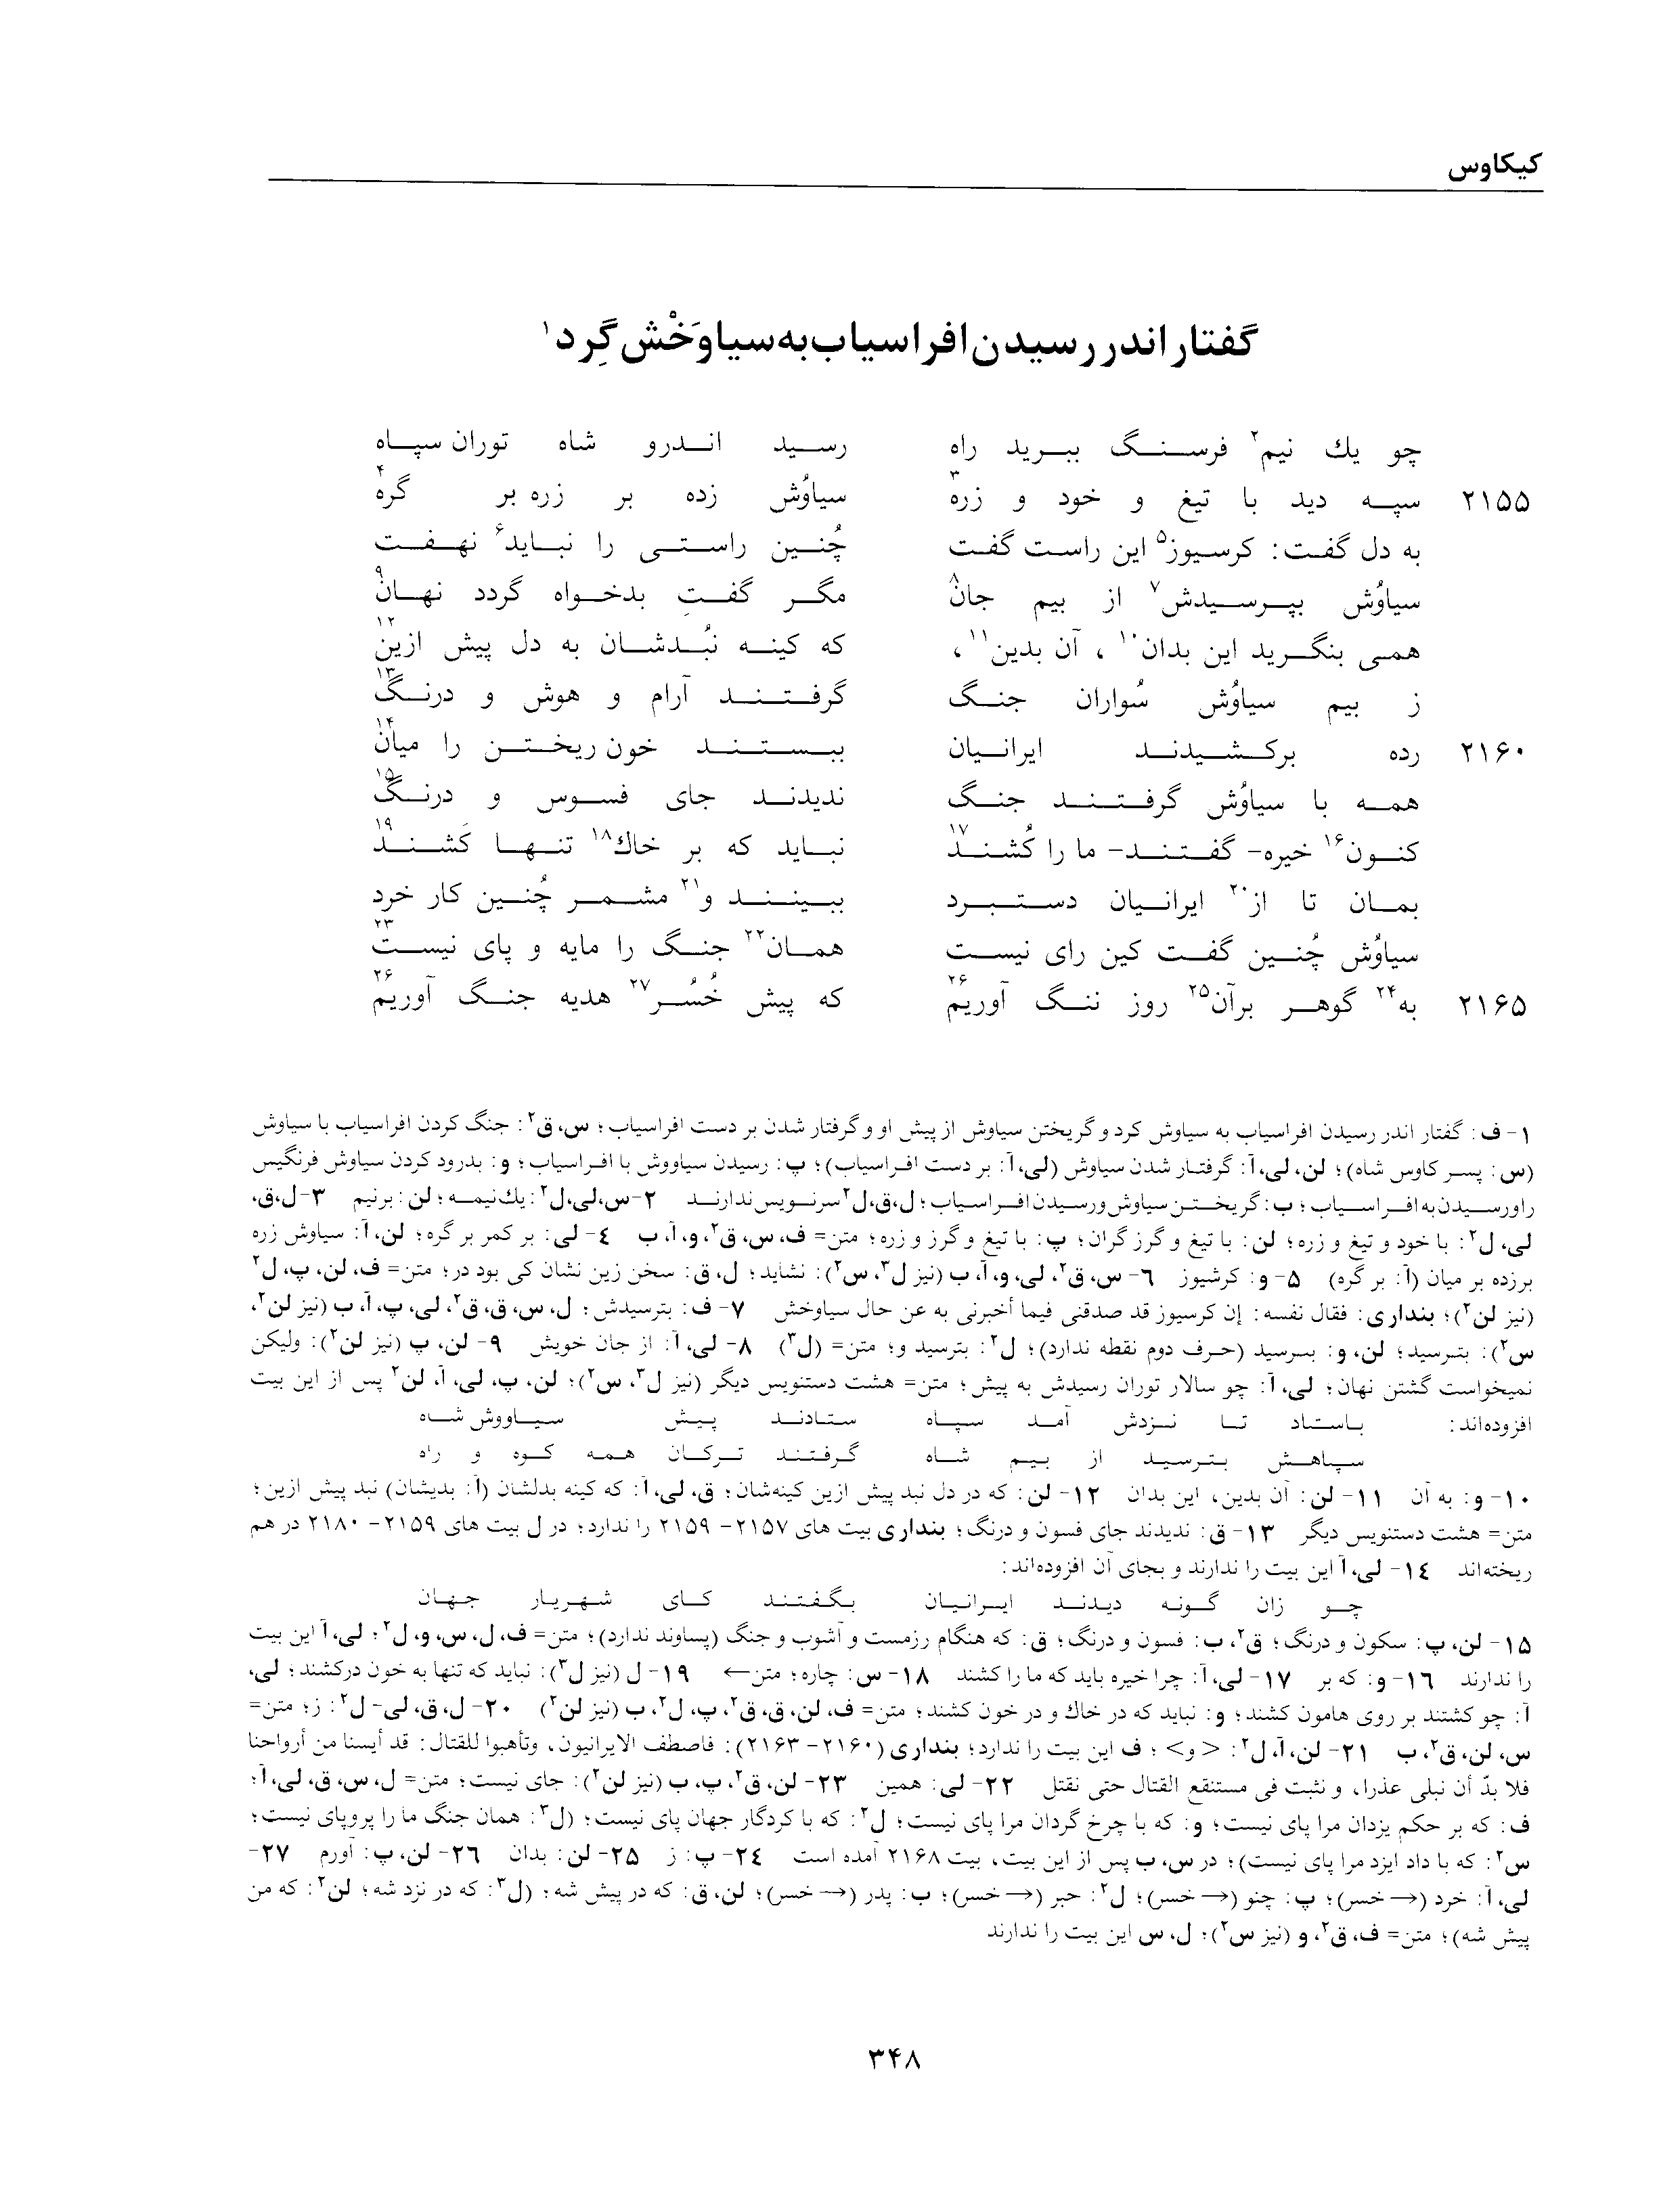 کیکاوس
گفتار اندر رسیدن افراسیاب به سیاوَخْش گِرد۱
چو یك نیم۲ فرسنگ ببرید راه رسید اندرو شاه توران سپاه
۲۱۵۵ سپه دید با تیغ و خود و زره۳ سیاوُش زده بر زره بر گره۴
به دل گفت: کرسیوز۵ این راست گفت چُنین راستی را نباید۶ نهفت
سیاوُش بپرسیدش۷ از بیم جان۸ مگر گفتِ بدخواه گردد نهان۹
همی بنگرید این بدان۱۰، آن بدین۱۱، که کینه نبُدشان به دل پیش ازین۱۲
ز بیم سیاوُش سُواران جنگ گرفتند آرام و هوش و درنگ۱۳
۲۱۶۰ رده برکشیدند ایرانیان ببستند خون ریختن را میان۱۴
همه با سیاوُش گرفتند جنگ ندیدند جای فسوس و درنگ۱۵
کنون۱۶ خیره- گفتند- ما را کُشند۱۷ نباید که بر خاك۱۸ تنها کَشند۱۹
بمان تا از۲۰ ایرانیان دستبرد ببینند و۲۱ مشمر چُنین کار خرد
سیاوُش چُنین گفت کین رای نیست همان۲۲ جنگ را مایه و پای نیست۲۳
۲۱۶۵ به۲۴ گوهر برآن۲۵ روز ننگ آوریم۲۶ که پیش خُسُر۲۷ هدیه جنگ آوریم۲۶
۱- ف: گفتار اندر رسیدن افراسیاب به سیاوش کرد و گریختن سیاوش از پیش او و گرفتار شدن بر دست افراسیاب؛ س، ق۲: جنگ کردن افراسیاب با سیاوش
(س: پسر کاوس شاه)؛ لن، لی، آ: گرفتار شدن سیاوش (لی، آ: بر دست افراسیاب)؛ پ: رسیدن سیاووش با افراسیاب؛ و: بدرود کردن سیاوش فرنگیس
را و رسیدن به افراسیاب؛ ب: گریختن سیاوش و رسیدن افراسیاب؛ ل، ق، ل۲ سرنویس ندارند ۲- س، لی، ل۲: یك نیمه؛ لن: برنیم ۳- ل، ق،
لی، ل۲: با خود و تیغ و زره؛ لن: با تیغ و گرز گران؛ پ: با تیغ و گرز و زره؛ متن= ف، س، ق۲، و، آ، ب ۴- لی: بر کمر بر گره؛ لن، آ: سیاوش زره
برزده بر میان (آ: بر گره) ۵- و: کرشیوز ۶- س، ق۲، لی، و، آ، ب (نیز ل۳، س۲): نشاید؛ ل، ق: سخن زین نشان کی بود در؛ متن= ف، لن، پ، ل۲
(نیز لن۲)؛ بنداری: فقال نفسه: إن کرسیوز قد صدقنی فیما أخبرنی به عن حال سیاوخش ۷- ف: بترسیدش؛ ل، س، ق، ق۲، لی، پ، آ، ب (نیز لن۲،
س۲): بترسید؛ لن، و: بـرسید (حرف دوم نقطه ندارد)؛ ل۲: بترسید و؛ متن= (ل۳) ۸- لی، آ: از جان خویش ۹- لن، پ (نیز لن۲): ولیکن
نمیخواست گشتن نهان؛ لی، آ: چو سالار توران رسیدش به پیش؛ متن= هشت دستنویس دیگر (نیز ل۳، س۲)؛ لن، پ، لی، آ، لن۲ پس از این بیت
افزوده‌اند: باستاد تا نزدش آمد سپاه ستادند پیش سیاووش شاه
سپاهش بترسید از بیم شاه گرفتند ترکان همه کوه و راه
۱۰- و: به آن ۱۱- لن: آن بدین، این بدان ۱۲- لن: که در دل نبد پیش ازین کینه‌شان؛ ق، لی، آ: که کینه بدلشان (آ: بدیشان) نبد پیش ازین؛
متن= هشت دستنویس دیگر ۱۳- ق: ندیدند جای فسون و درنگ؛ بنداری بیت های ۲۱۵۷- ۲۱۵۹ را ندارد؛ در ل بیت های ۲۱۵۹- ۲۱۸۰ در هم
ریخته‌اند ۱۴- لی، آ این بیت را ندارند و بجای آن افزوده‌اند:
چو زان گونه دیدند ایرانیان بگفتند کای شهریار جهان
۱۵- لن، پ: سکون و درنگ؛ ق۲، ب: فسون و درنگ؛ ق: که هنگام رزمست و آشوب و جنگ (پساوند ندارد)؛ متن= ف، ل، س، و، ل۲؛ لی، آ این بیت
را ندارند ۱۶- و: که بر ۱۷- لی، آ: چرا خیره باید که ما را کشند ۱۸- س: چاره؛ متن← ۱۹- ل (نیز ل۳): نباید که تنها به خون درکشند؛ لی،
آ: چو کشتند بر روی هامون کشند؛ و: نباید که در خاك و در خون کشند؛ متن= ف، لن، ق، ق۲، پ، ل۲، ب (نیز لن۲) ۲۰- ل، ق، لی- ل۲: ز؛ متن=
س، لن، ق۲، ب ۲۱- لن، آ، ل۲: <و>؛ ف این بیت را ندارد؛ بنداری (۲۱۶۰- ۲۱۶۳): فاصطف الایرانیون، وتأهبوا للقتال: قد أیسنا من أرواحنا
فلا بدّ أن نبلی عذرا، و نثبت فی مستنقع القتال حتی نقتل ۲۲- لی: همین ۲۳- لن، ق۲، پ، ب (نیز لن۲): جای نیست؛ متن= ل، س، ق، لی، آ؛
ف: که بر حکم یزدان مرا پای نیست؛ و: که با چرخ گردان مرا پای نیست؛ ل۲: که با کردگار جهان پای نیست؛ (ل۳: همان جنگ ما را پروپای نیست؛
س۲: که با داد ایزد مرا پای نیست)؛ در س، ب پس از این بیت، بیت ۲۱۶۸ آمده است ۲۴- پ: ز ۲۵- لن: بدان ۲۶- لن، پ: آورم ۲۷-
لی، آ: خرد (→ خسر)؛ پ: چنو (→ خسر)؛ ل۲: حبر (→ خسر)؛ ب: پدر (→ خسر)؛ لن، ق: که در پیش شه؛ (ل۳: که در نزد شه؛ لن۲: که من
پیش شه)؛ متن= ف، ق۲، و (نیز س۲)؛ ل، س این بیت را ندارند
۳۴۸